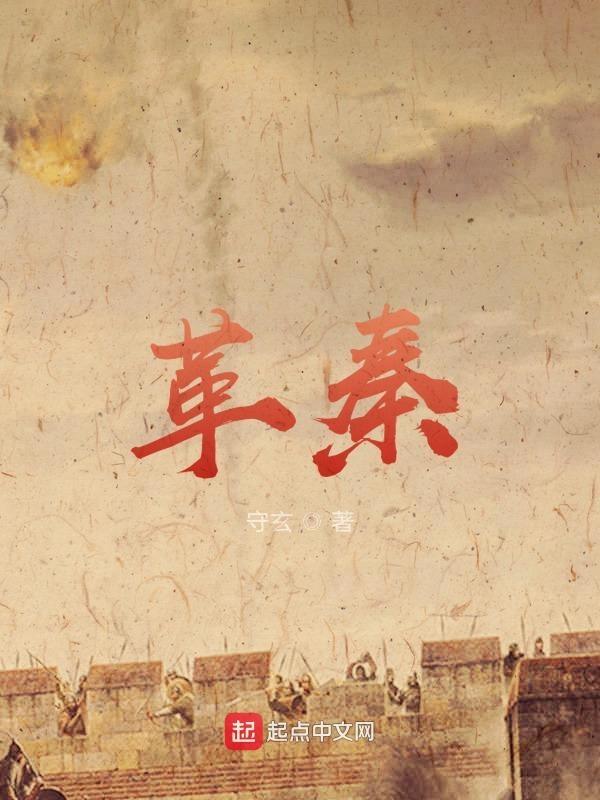 革秦
守玄 ◎ 著
起 起点中文网